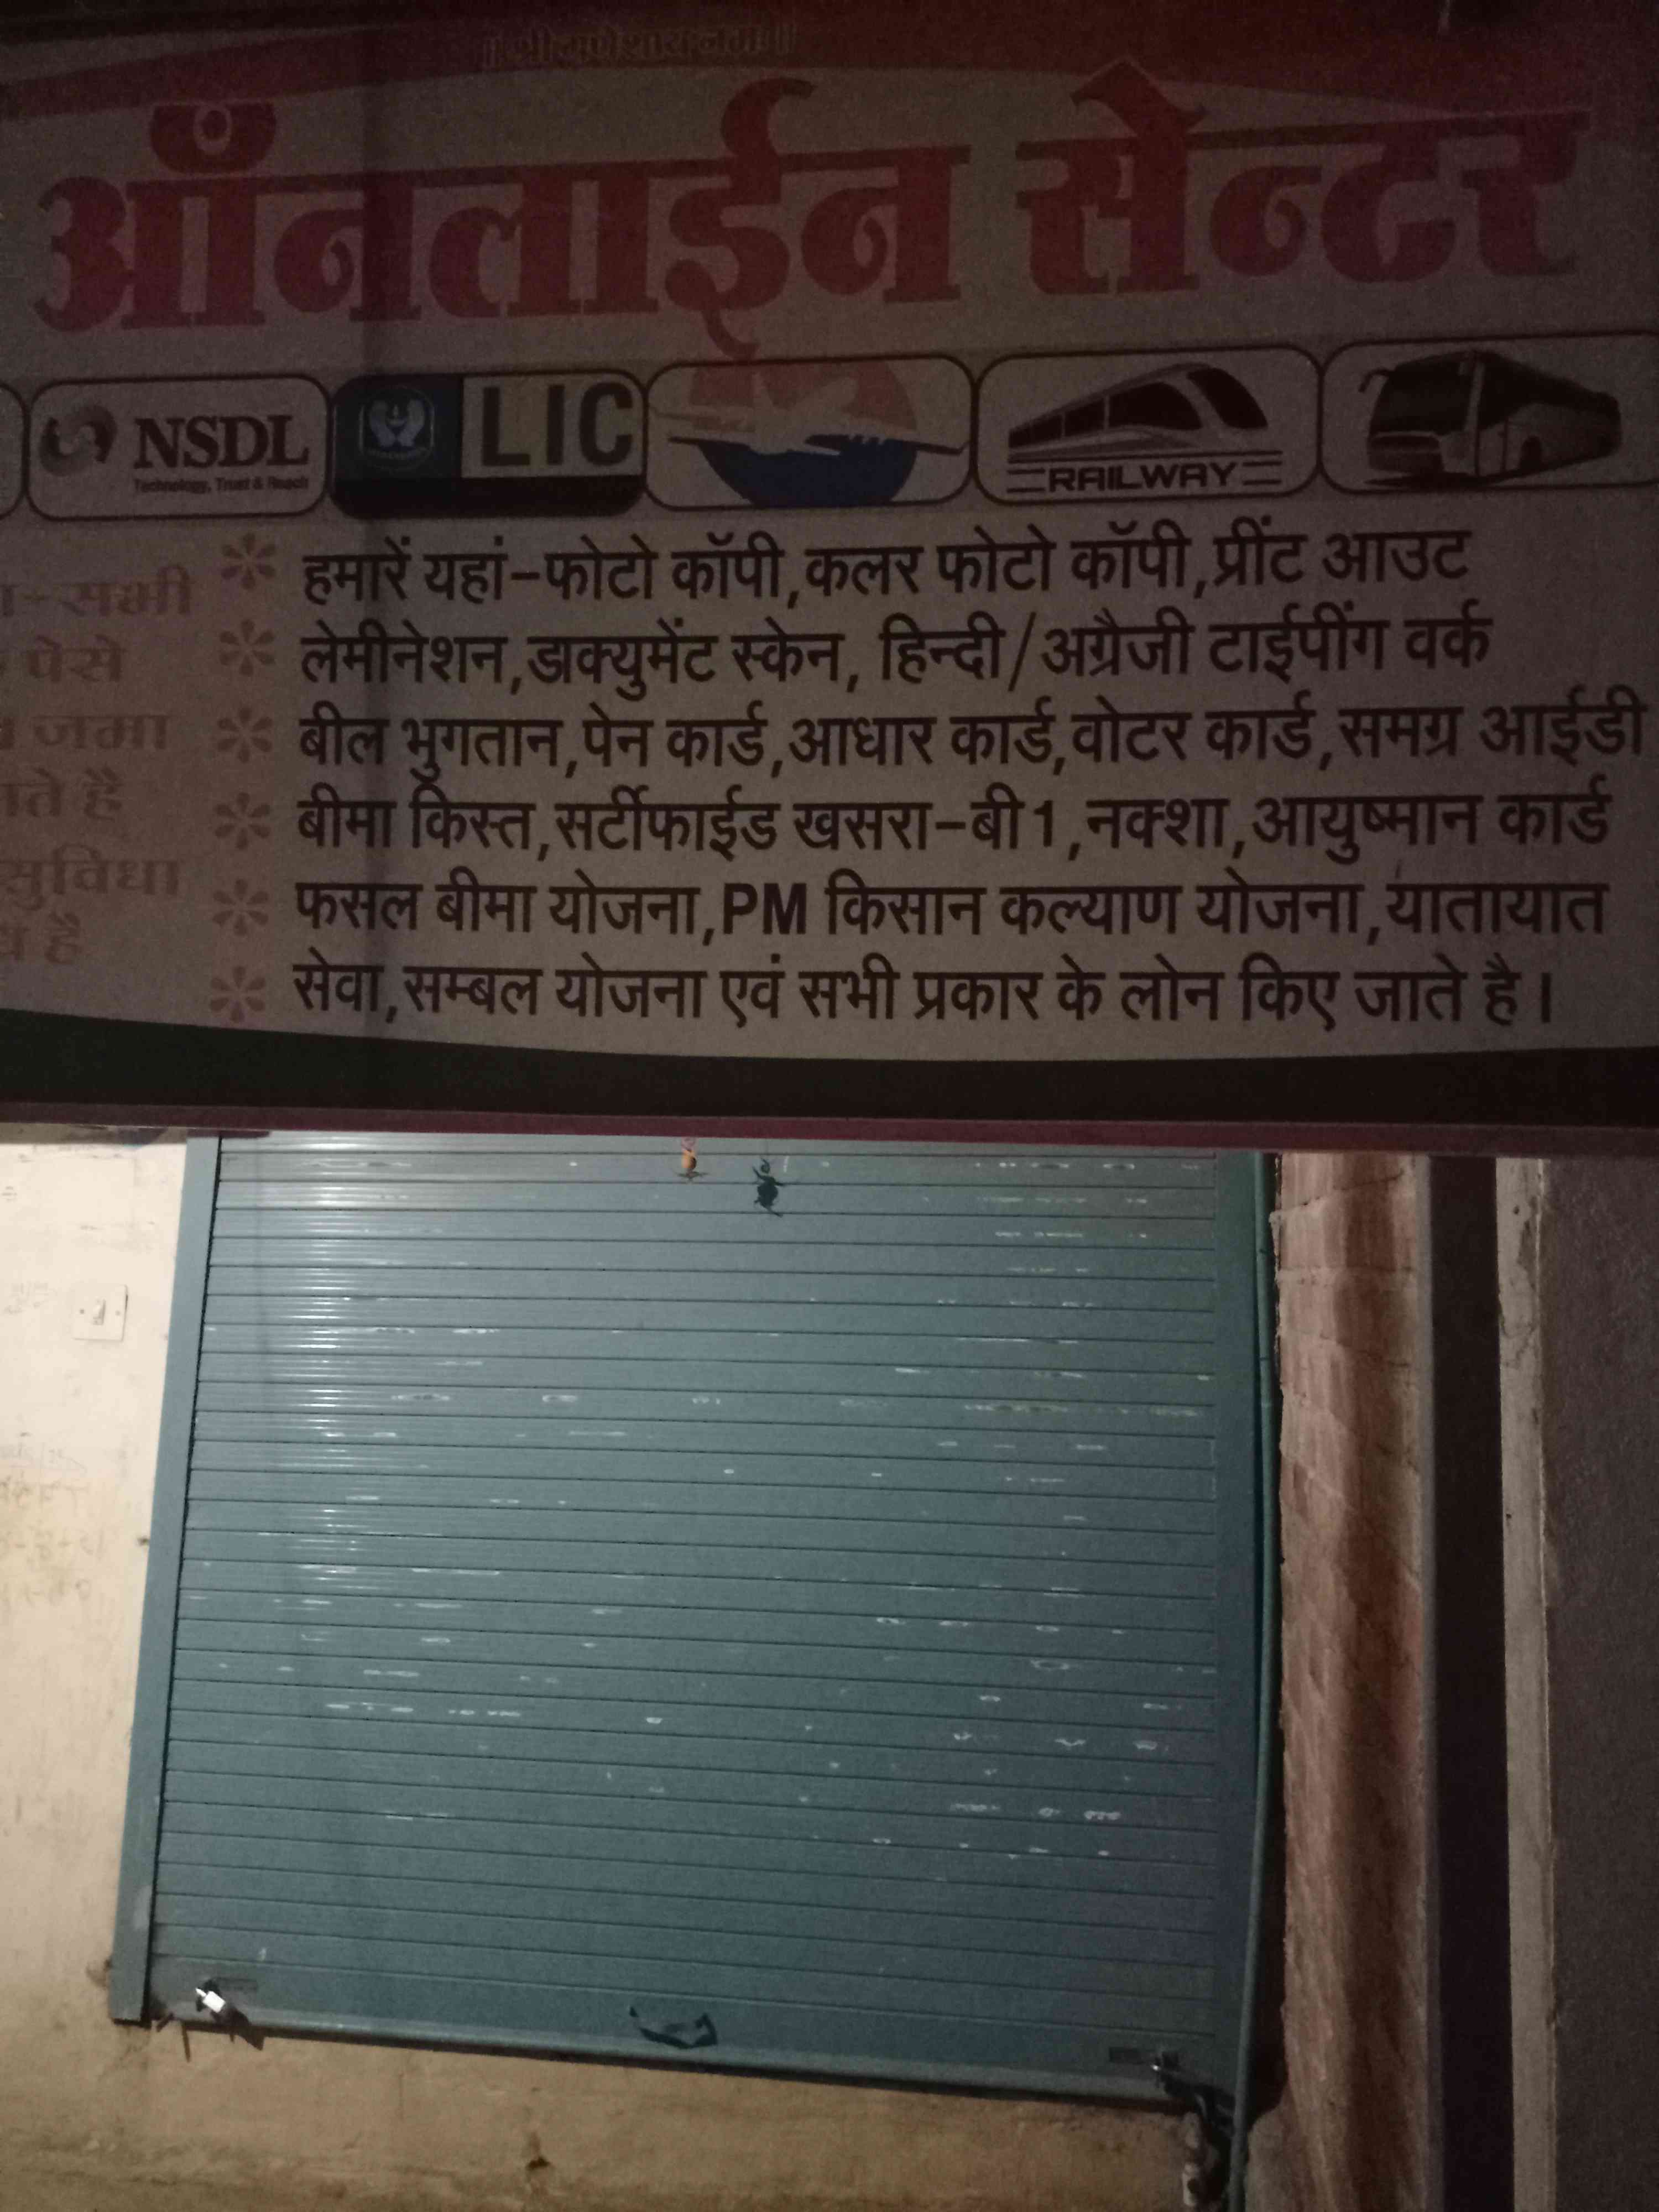 ॥ श्री गणेशाय नमः ॥
ऑनलाईन सेन्टर
NSDL
Technology, Trust & Reach
LIC
RAILWAY
सभी
पेसे
जमा
है
सुविधा
है
हमारें यहां-फोटो कॉपी,कलर फोटो कॉपी,प्रींट आउट
लेमीनेशन,डाक्युमेंट स्केन, हिन्दी/अग्रैजी टाईपींग वर्क
बील भुगतान,पेन कार्ड,आधार कार्ड,वोटर कार्ड,समग्र आईडी
बीमा किस्त,सर्टीफाईड खसरा-बी1,नक्शा,आयुष्मान कार्ड
फसल बीमा योजना,PM किसान कल्याण योजना,यातायात
सेवा,सम्बल योजना एवं सभी प्रकार के लोन किए जाते है।